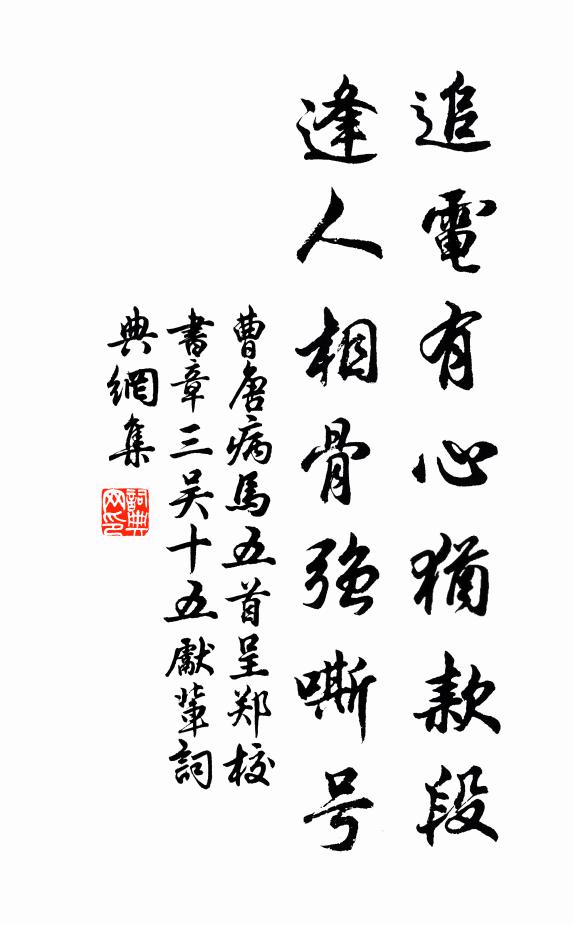 追電有心猶款段
逢人相骨強嘶号
曹唐病馬五首呈郑校
書章三吴十五獻軰詞
典網集
詞典网印